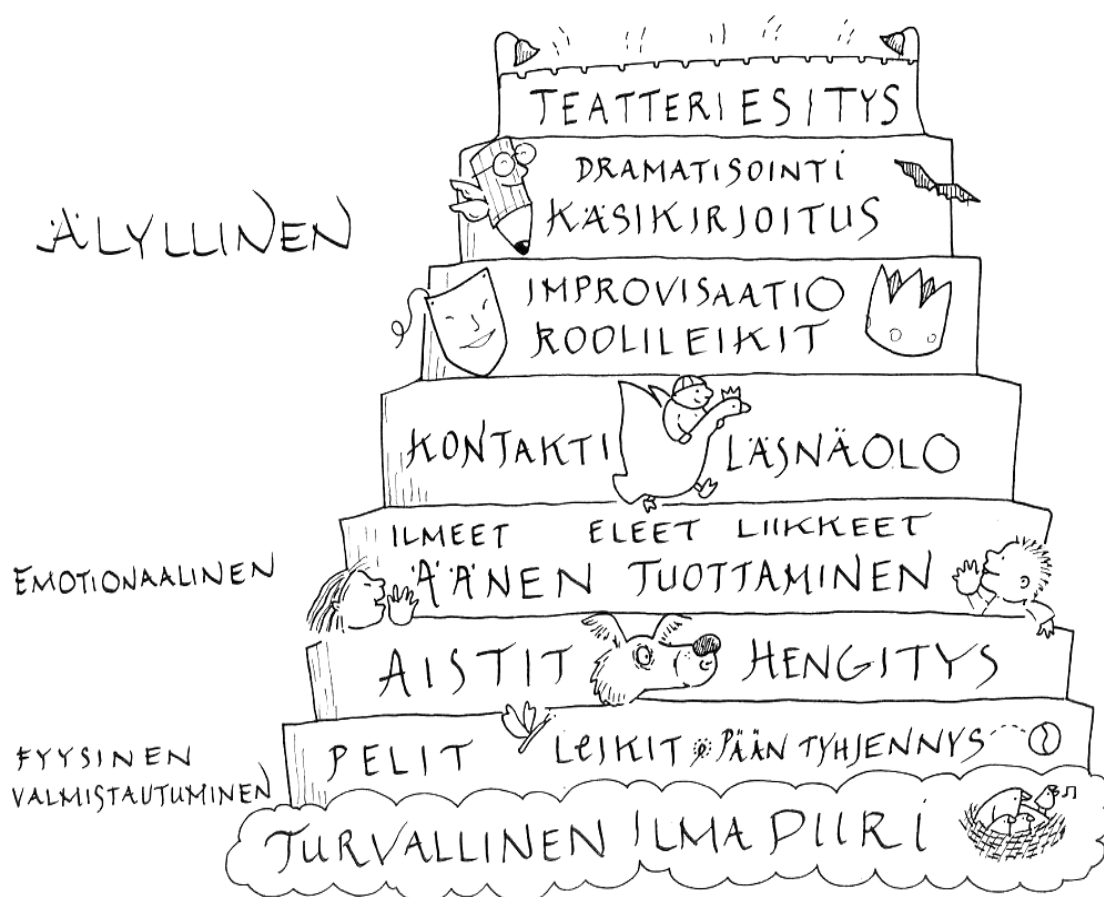 TEATTERIESITYS
DRAMATISOINTI
KÄSIKIRJOITUS
ÄLYLLINEN
IMPROVISAATIO
ROOLILEIKIT
KONTAKTI LÄSNÄOLO
ILMEET ELEET LIIKKEET
ÄÄNEN TUOTTAMINEN
EMOTIONAALINEN
AISTIT HENGITYS
PELIT LEIKIT PÄÄN TYHJENNYS
FYYSINEN
VALMISTAUTUMINEN
TURVALLINEN ILMAPIIRI